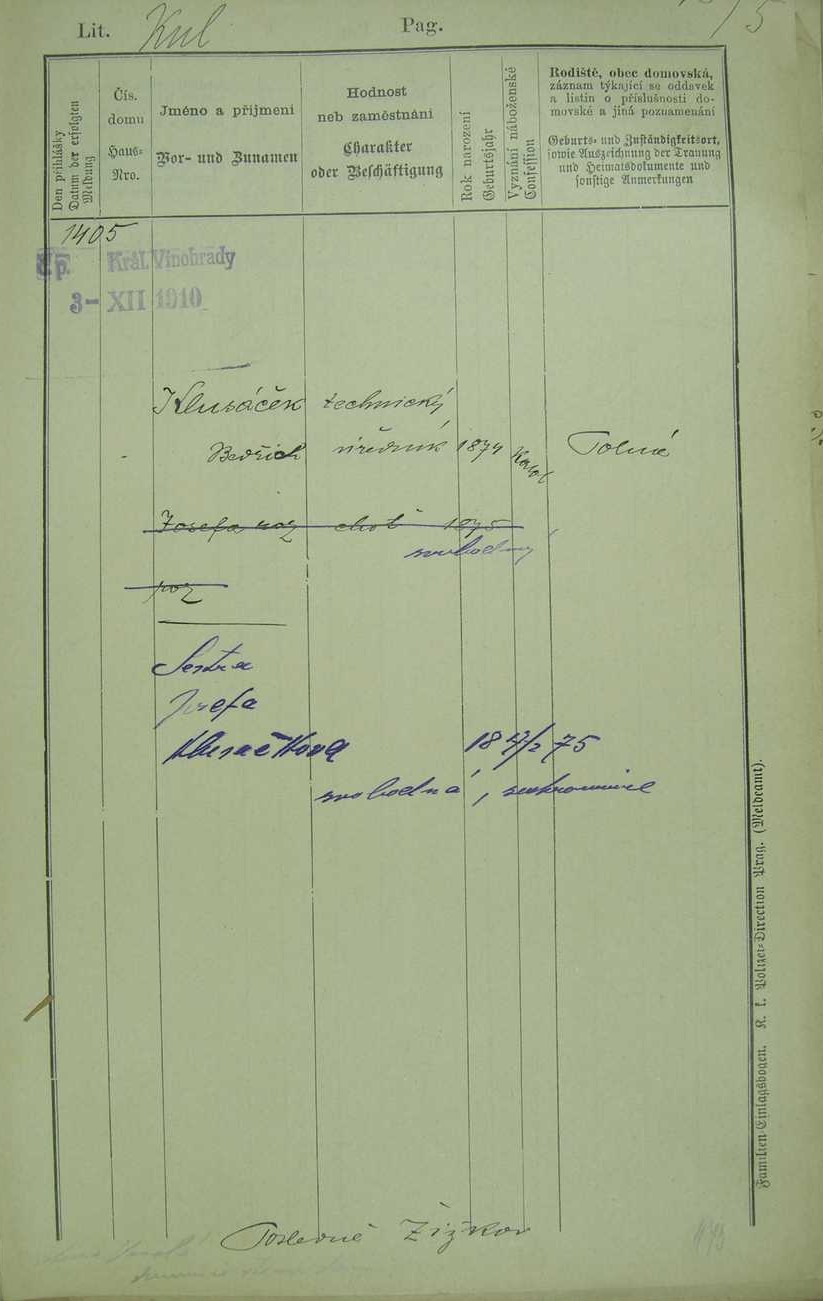 Lit. Kul Pag.
Den přihlášky
Datum der erfolgten Meldung
Čís. domu
Haus-Nro.
Jméno a příjmení
Vor- und Zunamen
Hodnost
neb zaměstnání
Charakter
oder Beschäftigung
Rok narození
Geburtsjahr
Vyznání náboženské
Confession
Rodiště, obec domovská,
záznam týkající se oddavek
a listin o příslušnosti do-
movské a jiná poznamenání
Geburts- und Zuständigkeitsort,
sowie Auszeichnung der Trauung
und Heimatsdokumente und
sonstige Anmerkungen
1405
Král. Vinohrady
3- XII 1910
Klusáček technický
Bedřich úředník 1874
Josefa roz choť 1875
svobodný
roz
Sestra
Josefa
Klusáčková 18 4/2 75
svobodná, soukromnice
Posledně Žižkov
Familien-Einlagsbogen. K. k. Polizei-Direction Prag. (Meldeamt).